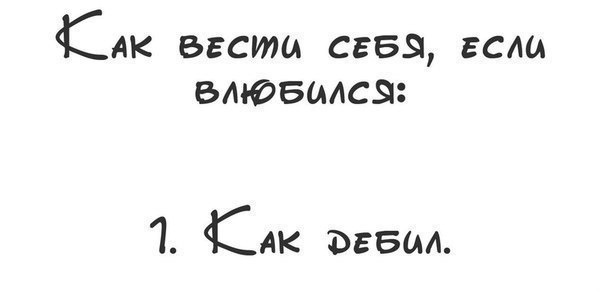 Как вести себя, если
влюбился:
1. Как дебил.